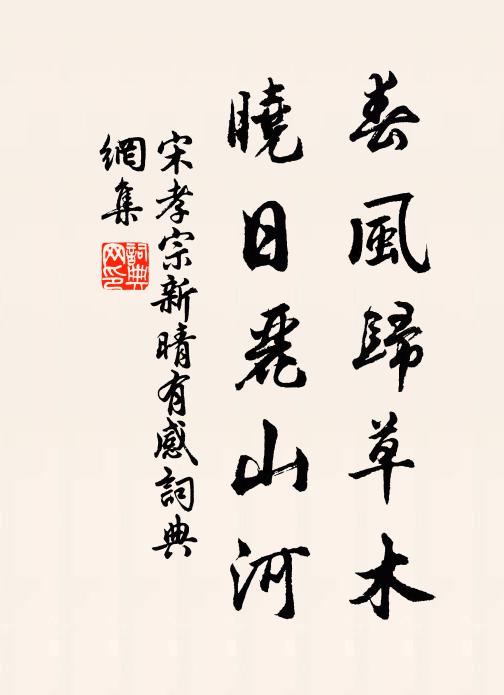 春風歸草木
曉日麗山河
宋孝宗新晴有感詞典
網集
詞典网印